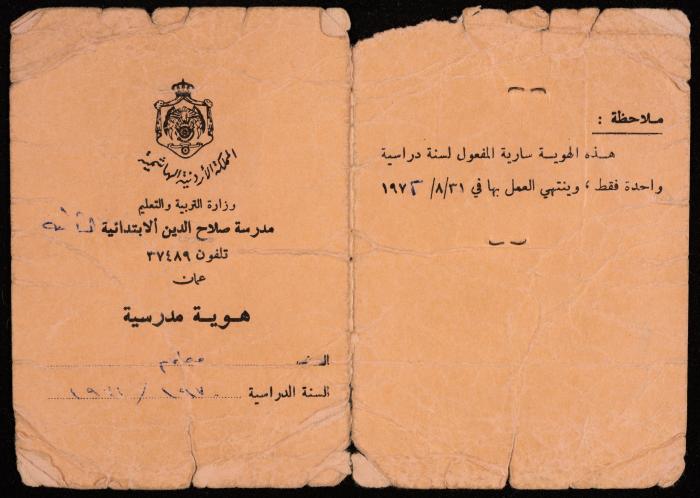 المملكة الأردنية الهاشمية
وزارة التربية والتعليم
مدرسة صلاح الدين الابتدائية
تلفون ٣٧٤٨٩
عمان
هوية مدرسية
السنة الدراسية
ملاحظة :
هذه الهوية سارية المفعول لسنة دراسية
واحدة فقط ، وينتهي العمل بها في ٣١/٨/